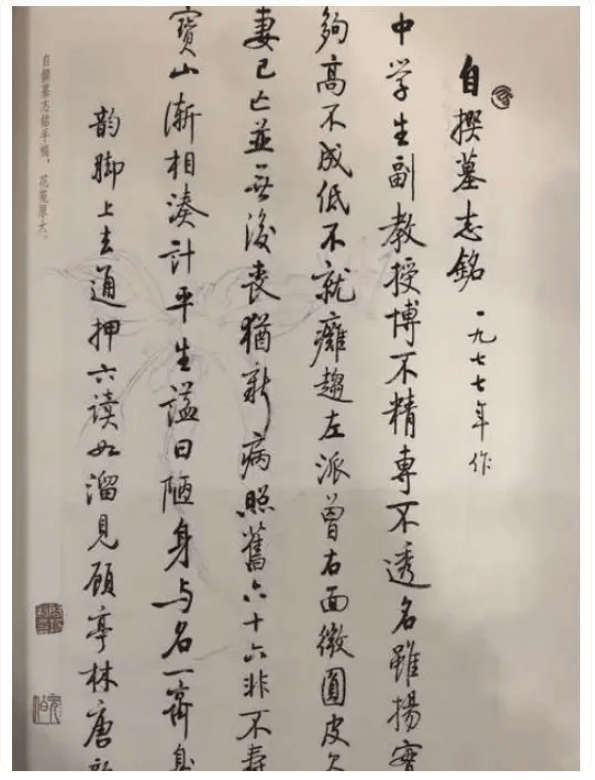 自撰墓志銘 一九七七年作
中学生副教授博不精專不透名雖揚實
夠高不成低不就癱趨左派曾右面微圓皮欠
妻已亡並无後喪猶新病照舊六十六非不壽
寳山漸相湊計平生謚曰陋身与名一齊臭
韵脚上去通押六读如溜見顧亭林唐韵
自撰墓志銘手稿,花箋原大。